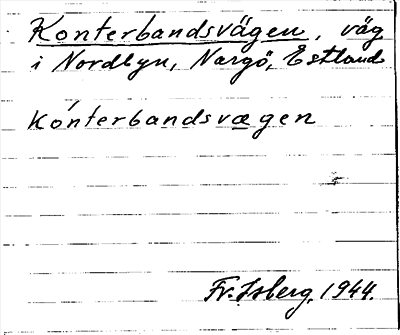 Konterbandsvägen, väg
i Nordbyn, Nargö, Estland
kónterbandsvægen
Fr. Isberg, 1944.